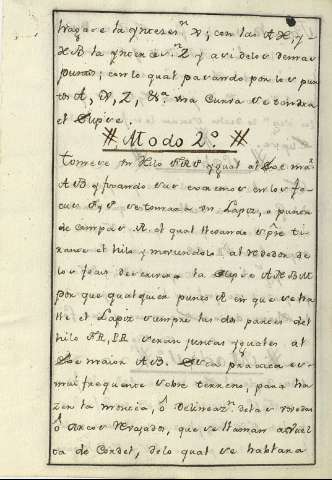 tragace la ynterez.n V; con las AX, y
XB la ynterez.n Z y asi delos demas
puntos; con lo qual pasando por los pun
tos A, V, Z, &.a una Curva se tendra
el Elipse.
# Modo 2.o #
tomese un Hilo FRF ygual al Exe ma.r
AB y fixando sus extremos en los fo
cus F, F se tomará un Lapiz, o punta
de compas R. el qual llevando sp̃re ti
rante el hilo y moviendolo al rededor de
los focus descrivirá la Elipse ARBM
por que qualquier punto R en que se ha
lle el Lapiz siempre las dos partes del
hilo FR, FR seran juntas yguales al
Exe maior AB. Esta practica es
mui frequente sobre terreno, para ha
zer la montea, ô delineaz.n delas
ô Arcos Revajados, que se llaman a vuel
ta de Cordel, delo qual se hablara